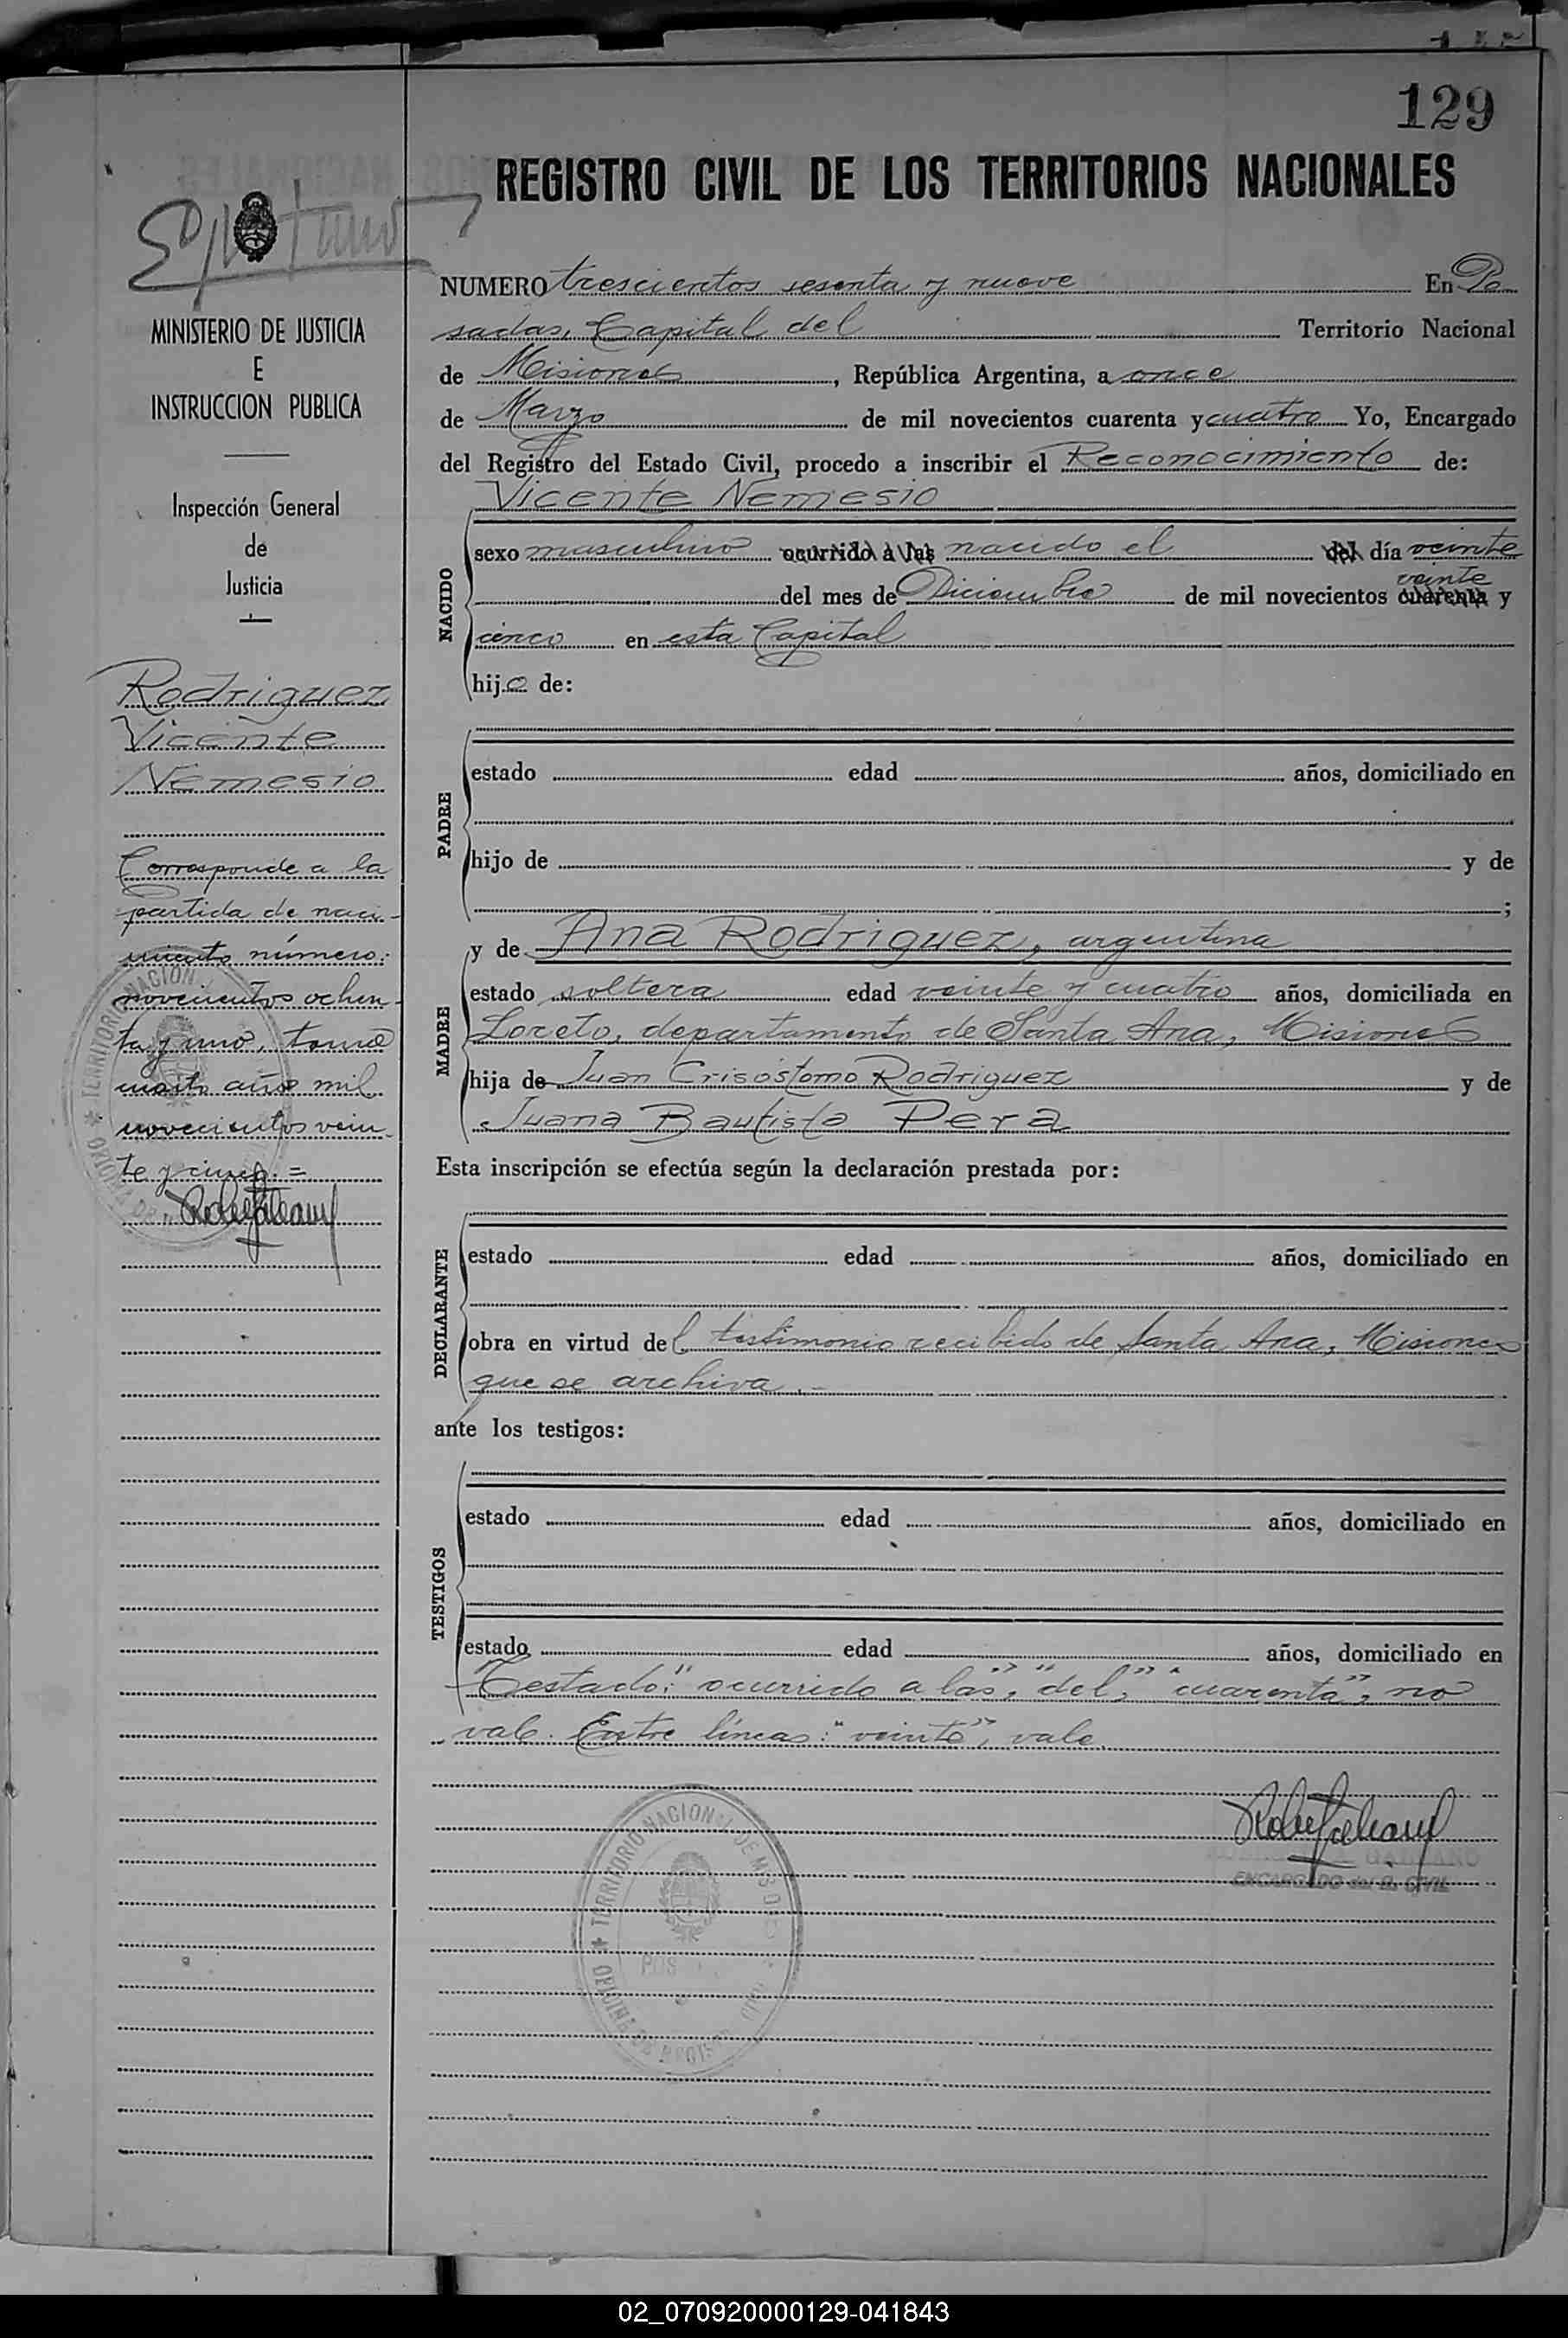 129
REGISTRO CIVIL DE LOS TERRITORIOS NACIONALES
MINISTERIO DE JUSTICIA
E
INSTRUCCION PUBLICA
Inspección General
de
Justicia
Rodriguez
Vicente
Nemesio
Corresponde a la
partida de naci-
miento número:
novecientos ochen-
ta y uno, tomo
cuarto año mil
novecientos vein-
te y cinco.=
NUMERO trescientos sesenta y nueve En Po
sadas, Capital del Territorio Nacional
de Misiones, República Argentina, a once
de Marzo de mil novecientos cuarenta y cuatro Yo, Encargado
del Registro del Estado Civil, procedo a inscribir el Reconocimiento de:
Vicente Nemesio
NACIDO
sexo masculino ocurrido a las nacido el del día veinte
veinte
del mes de Diciembre de mil novecientos cuarenta y
cinco en esta Capital
hijo de:
PADRE
estado edad años, domiciliado en
hijo de y de
;
MADRE
y de Ana Rodriguez, argentina
estado soltera edad veinte y cuatro años, domiciliada en
Loreto, departamento de Santa Ana, Misiones
hija de Juan Crisóstomo Rodriguez y de
Juana Bautista Pera
Esta inscripción se efectúa según la declaración prestada por:
DECLARANTE
estado edad años, domiciliado en
obra en virtud del testimonio recibido de Santa Ana, Misiones
que se archiva.-
ante los testigos:
TESTIGOS
estado edad años, domiciliado en
estado edad años, domiciliado en
Testado: "ocurrido a las", "del", "cuarenta", no
vale. Entre líneas: "veinte", vale.
TERRITORIO NACIONAL DE MISIONES
OFICINA DE REGISTRO CIVIL
ENCARGADO del R. CIVIL
02_070920000129-041843